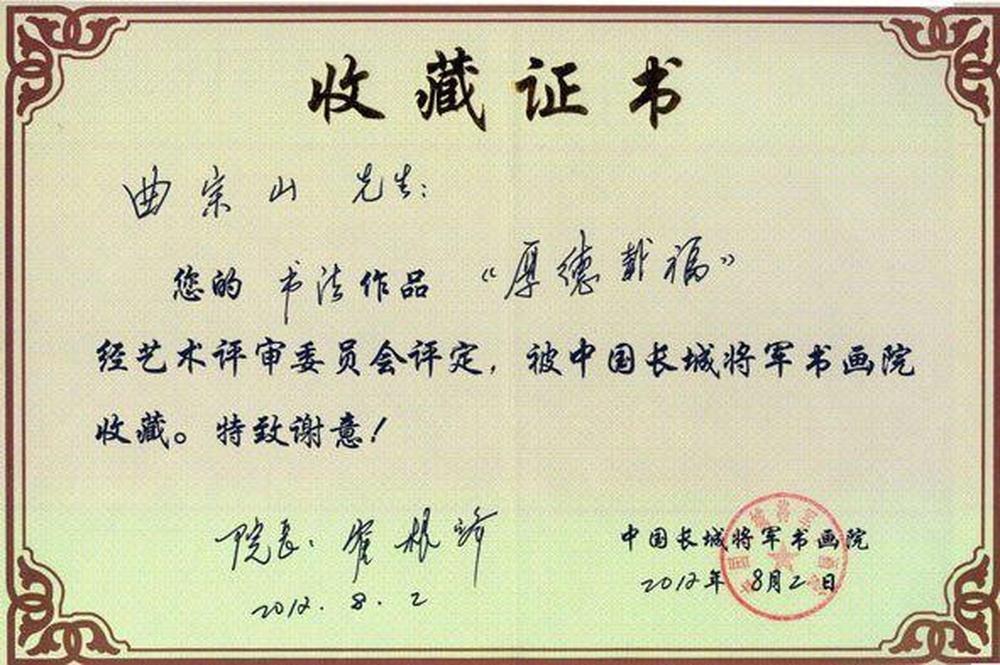 收藏证书
曲宗山 先生：
您的 书法作品 “厚德载福”
经艺术评审委员会评定，被中国长城将军书画院
收藏。特致谢意！
院长：崔根
2012.8.2
中国长城将军书画院
2012年 8月2日